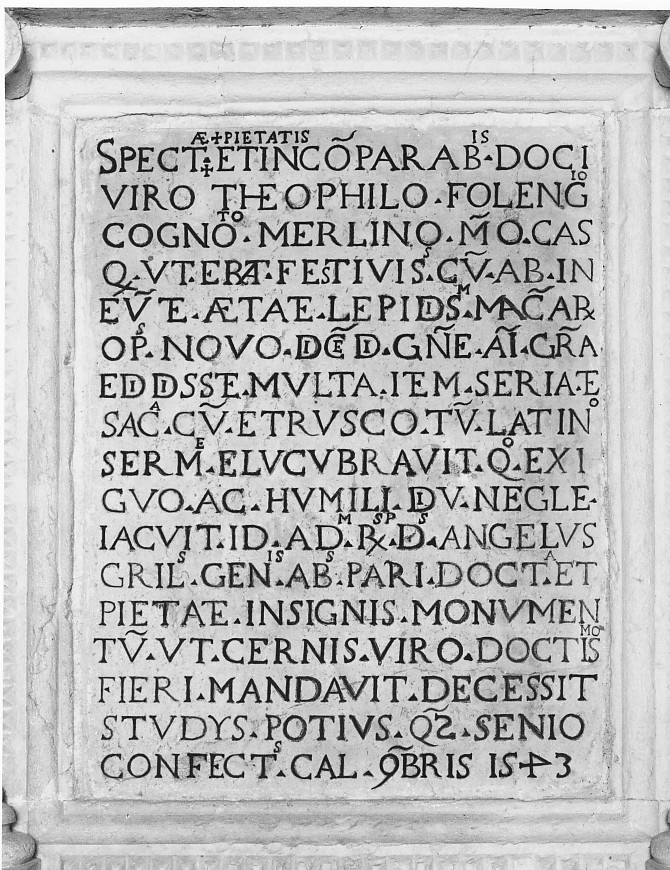 Æ+PIETATIS IS
SPECT.ETINCÕPARAB.DOCI
VIRO THEOPHILO.FOLENGIO
COGNOTO.MERLINO.M̃O.CAS
Q.VT.ERAT.FESTIVISS.CṼ.AB.IN
EṼTE.ÆTAE.LEPIDSM.MAC̃AR
OPS.NOVO.DCED.GÑE.AĨ.GR̃A
EDIDSSE.MVLTA.IEM.SERIA.E
SAC̃A.CṼ.ETRVSCO.TṼ.LATINO
SERME.ELVCVBRAVIT.QO.EXI
GVO.AC.HVMILI.DV.NEGLE.
IACVIT.ID.ADM.RSP.DS.ANGELVS
GRILS.GENIS.ABS.PARI.DOCTA.ET
PIETAE.INSIGNIS.MONVMEN
TṼ.VT.CERNIS.VIRO.DOCTISMO
FIERI.MANDAVIT.DECESSIT
STVDYS.POTIVS.Q̃2.SENIO
CONFECTS.CAL.9̃BRIS 1543